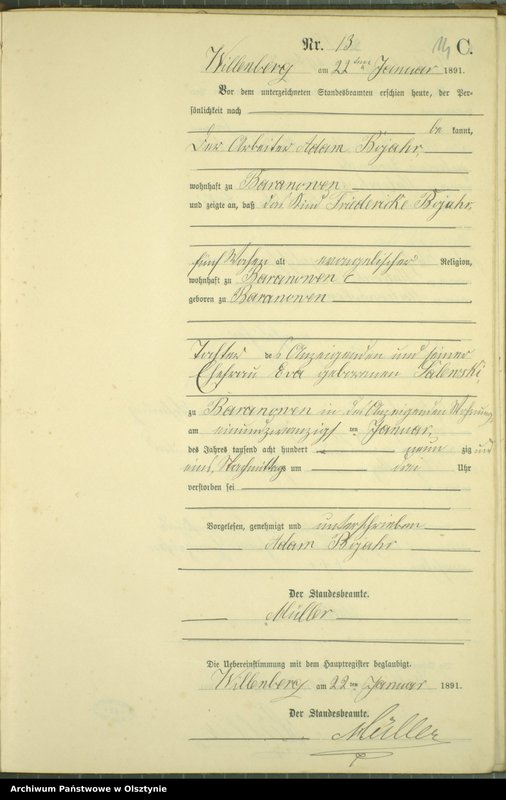 Nr. 13 C.
Willenberg am 22 ten Januar 1891.
Vor dem unterzeichneten Standesbeamten erschien heute, der Per-
sönlichkeit nach
be kannt,
der Arbeiter Adam Bojahr,
wohnhaft zu Baranowen
und zeigte an, daß das Kind Friedericke Bojahr,
fünf Wochen alt evangelischer Religion,
wohnhaft zu Baranowen
geboren zu Baranowen
Tochter des Anzeigenden und seiner
Ehefrau Eva geborenen
zu Baranowen in des Anzeigenden Wohnung,
am einundzwanzigs ten Januar,
des Jahres tausend acht hundert neun zig und
eins, Nachmittags um drei Uhr
verstorben sei
Vorgelesen, genehmigt und unterschrieben
Adam Bojahr
Der Standesbeamte.
Müller
Die Uebereinstimmung mit dem Hauptregister beglaubigt.
Willenberg am 22 ten Januar 1891.
Der Standesbeamte.
Müller
Archiwum Państwowe w Olsztynie